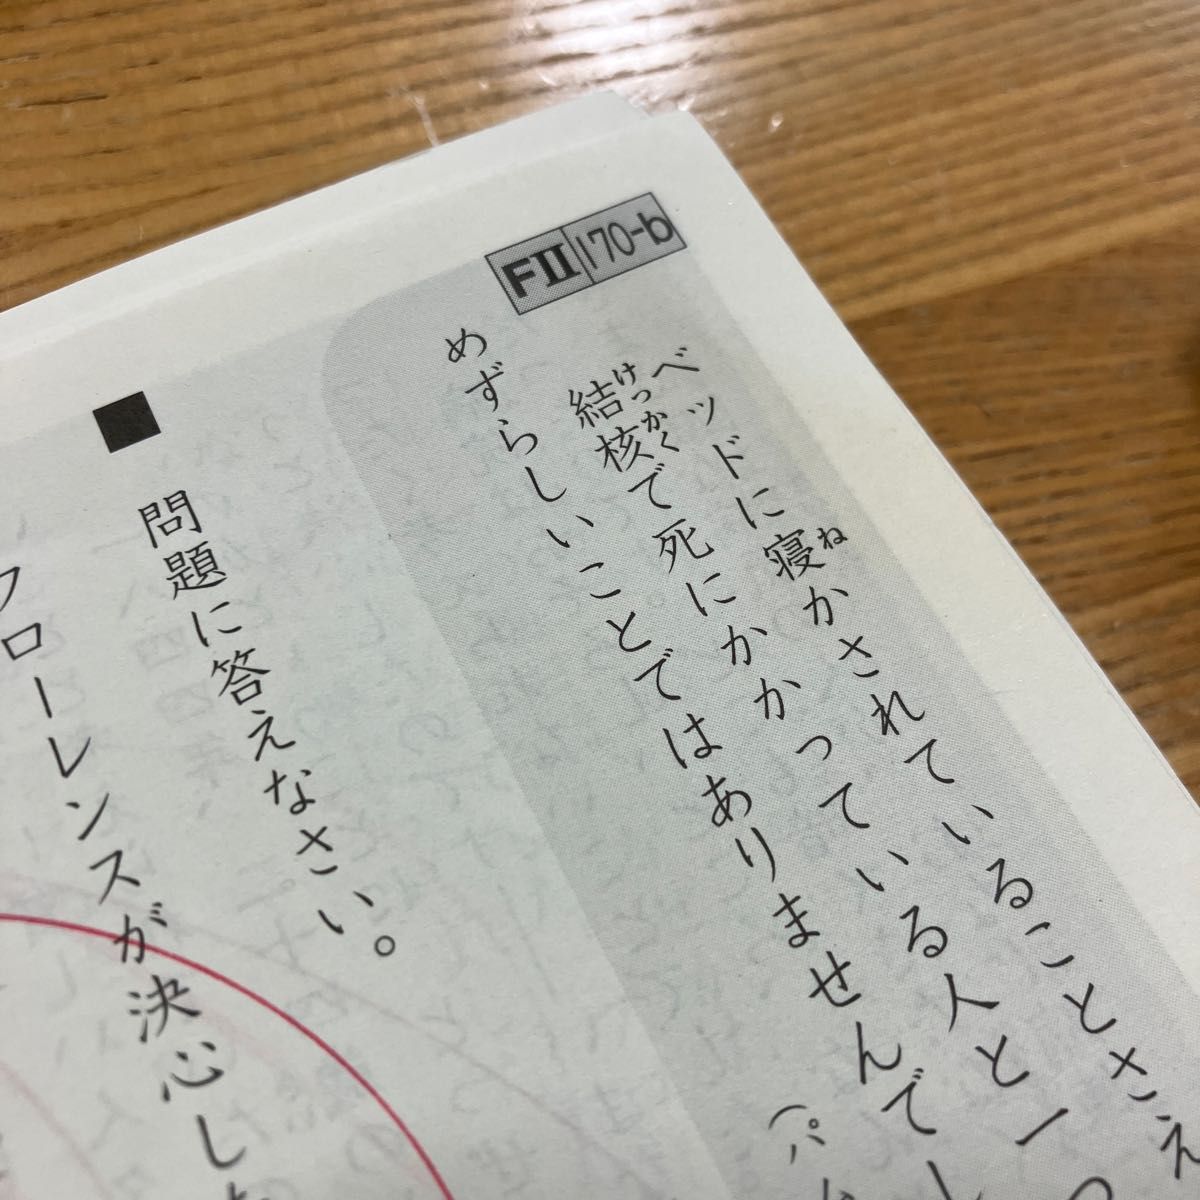 FⅡ 170-b
ベッドに寝かされていることさえ
結核で死にかかっている人と一つ
めずらしいことではありませんでし
■ 問題に答えなさい。
フローレンスが決心し
ね
けっかく